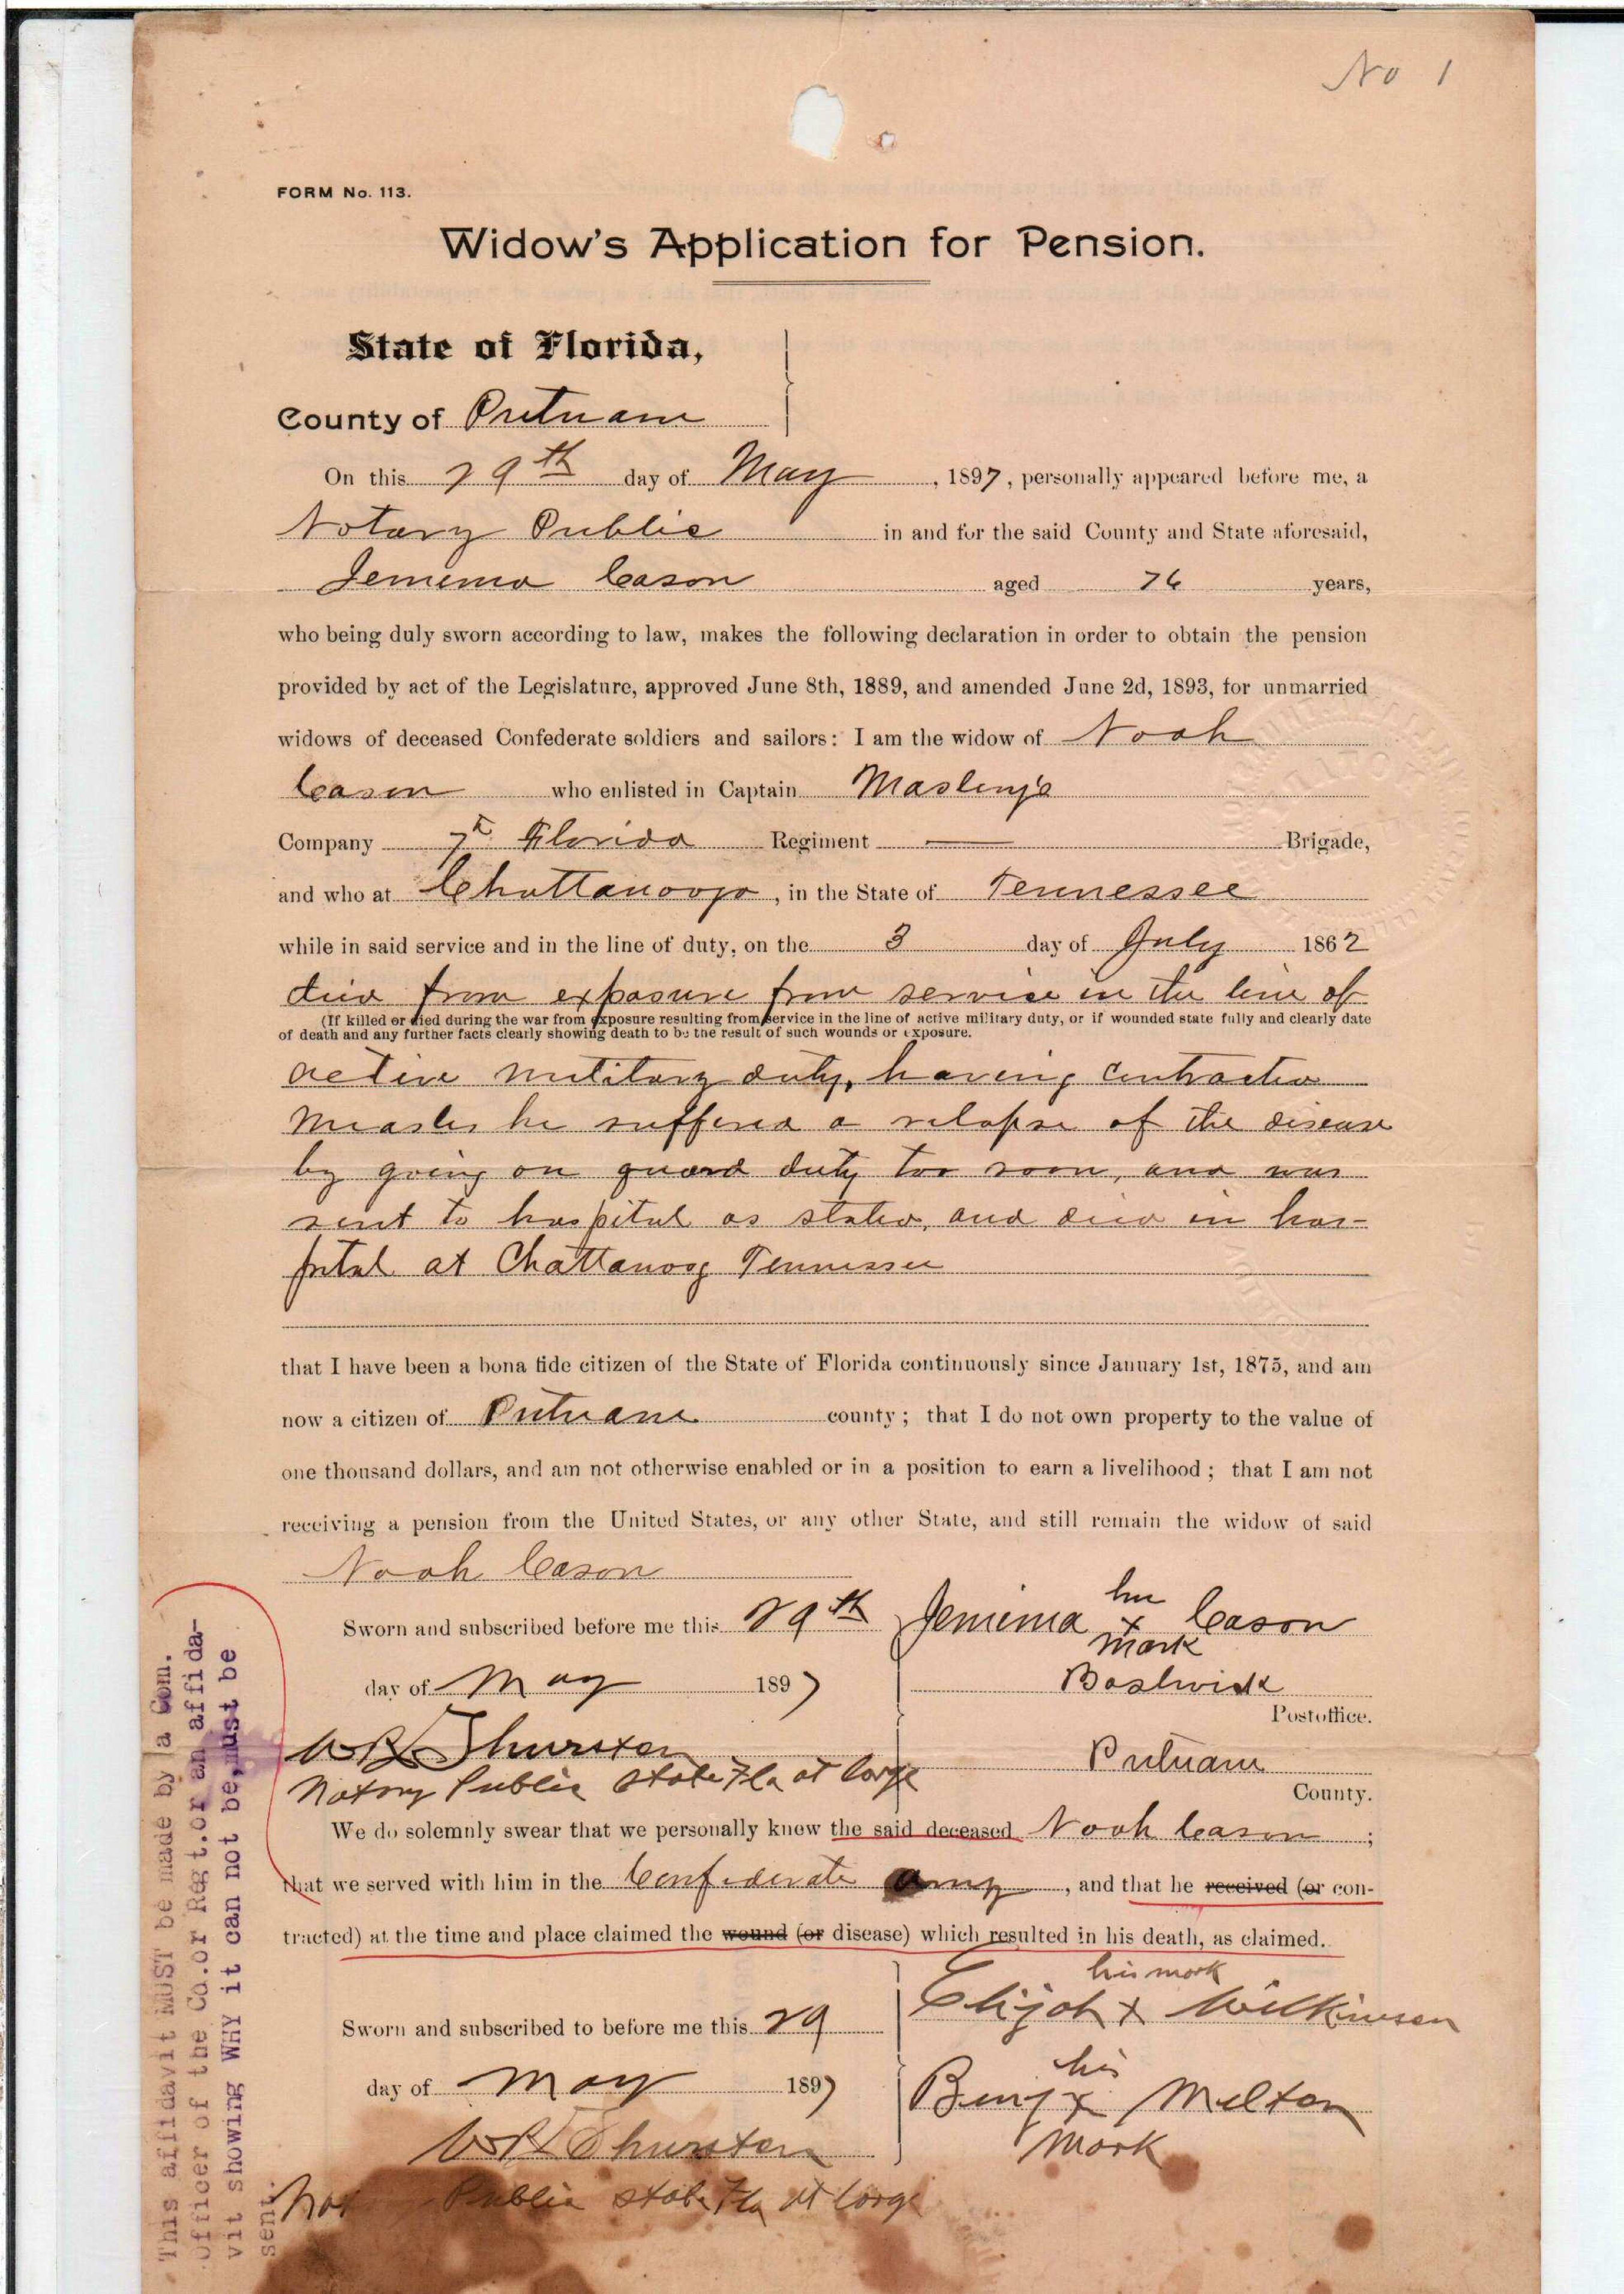 No 1
FORM No. 113.
Widow's Application for Pension.
State of Florida,
County of Putnam
On this 29th day of May, 1897, personally appeared before me, a
Notary Public in and for the said County and State aforesaid,
Jemima Cason aged 76 years,
who being duly sworn according to law, makes the following declaration in order to obtain the pension
provided by act of the Legislature, approved June 8th, 1889, and amended June 2d, 1893, for unmarried
widows of deceased Confederate soldiers and sailors: I am the widow of Noah
Cason who enlisted in Captain
Company 7th Florida Regiment — Brigade,
and who at Chattanooga, in the State of Tennessee
while in said service and in the line of duty, on the 3 day of July 1862
died from exposure from service in the line of
(If killed or died during the war from exposure resulting from service in the line of active military duty, or if wounded state fully and clearly date
of death and any further facts clearly showing death to be the result of such wounds or exposure.
active military duty, having contracted
measles he suffered a relapse of the disease
by going on guard duty too soon, and was
sent to hospital as stated, and died in hos-
pital at Chattanoog Tennessee
that I have been a bona fide citizen of the State of Florida continuously since January 1st, 1875, and am
now a citizen of Putnam county; that I do not own property to the value of
one thousand dollars, and am not otherwise enabled or in a position to earn a livelihood; that I am not
receiving a pension from the United States, or any other State, and still remain the widow of said
Noah Cason
Sworn and subscribed before me this 29th Jemima her x mark Cason
day of May 1897 Bostwick
Postoffice.
W R Thurston Putnam
Notary Public State Fla at large County.
We do solemnly swear that we personally knew the said deceased Noah Cason;
that we served with him in the Confederate army, and that he received (or con-
tracted) at the time and place claimed the wound (or disease) which resulted in his death, as claimed.
his mark
Sworn and subscribed to before me this 29 Elijah x Wilkinson
his
day of May 1897 Benj x Melton
mark
W R Thurston
Not Public State Fla at large
This affidavit MUST be made by a Com.
officer of the Co.or Regt.or an affida-
vit showing WHY it can not be,must be
sent.